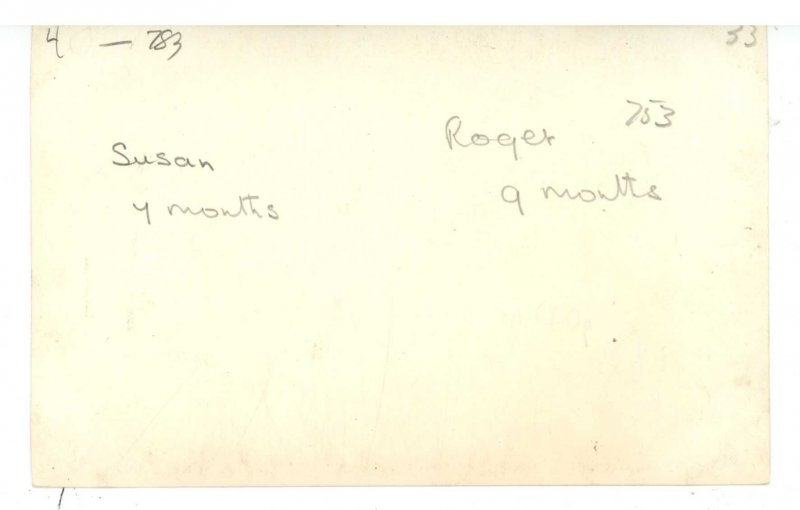 4 — 783
33
Roger 753
Susan
9 months
4 months